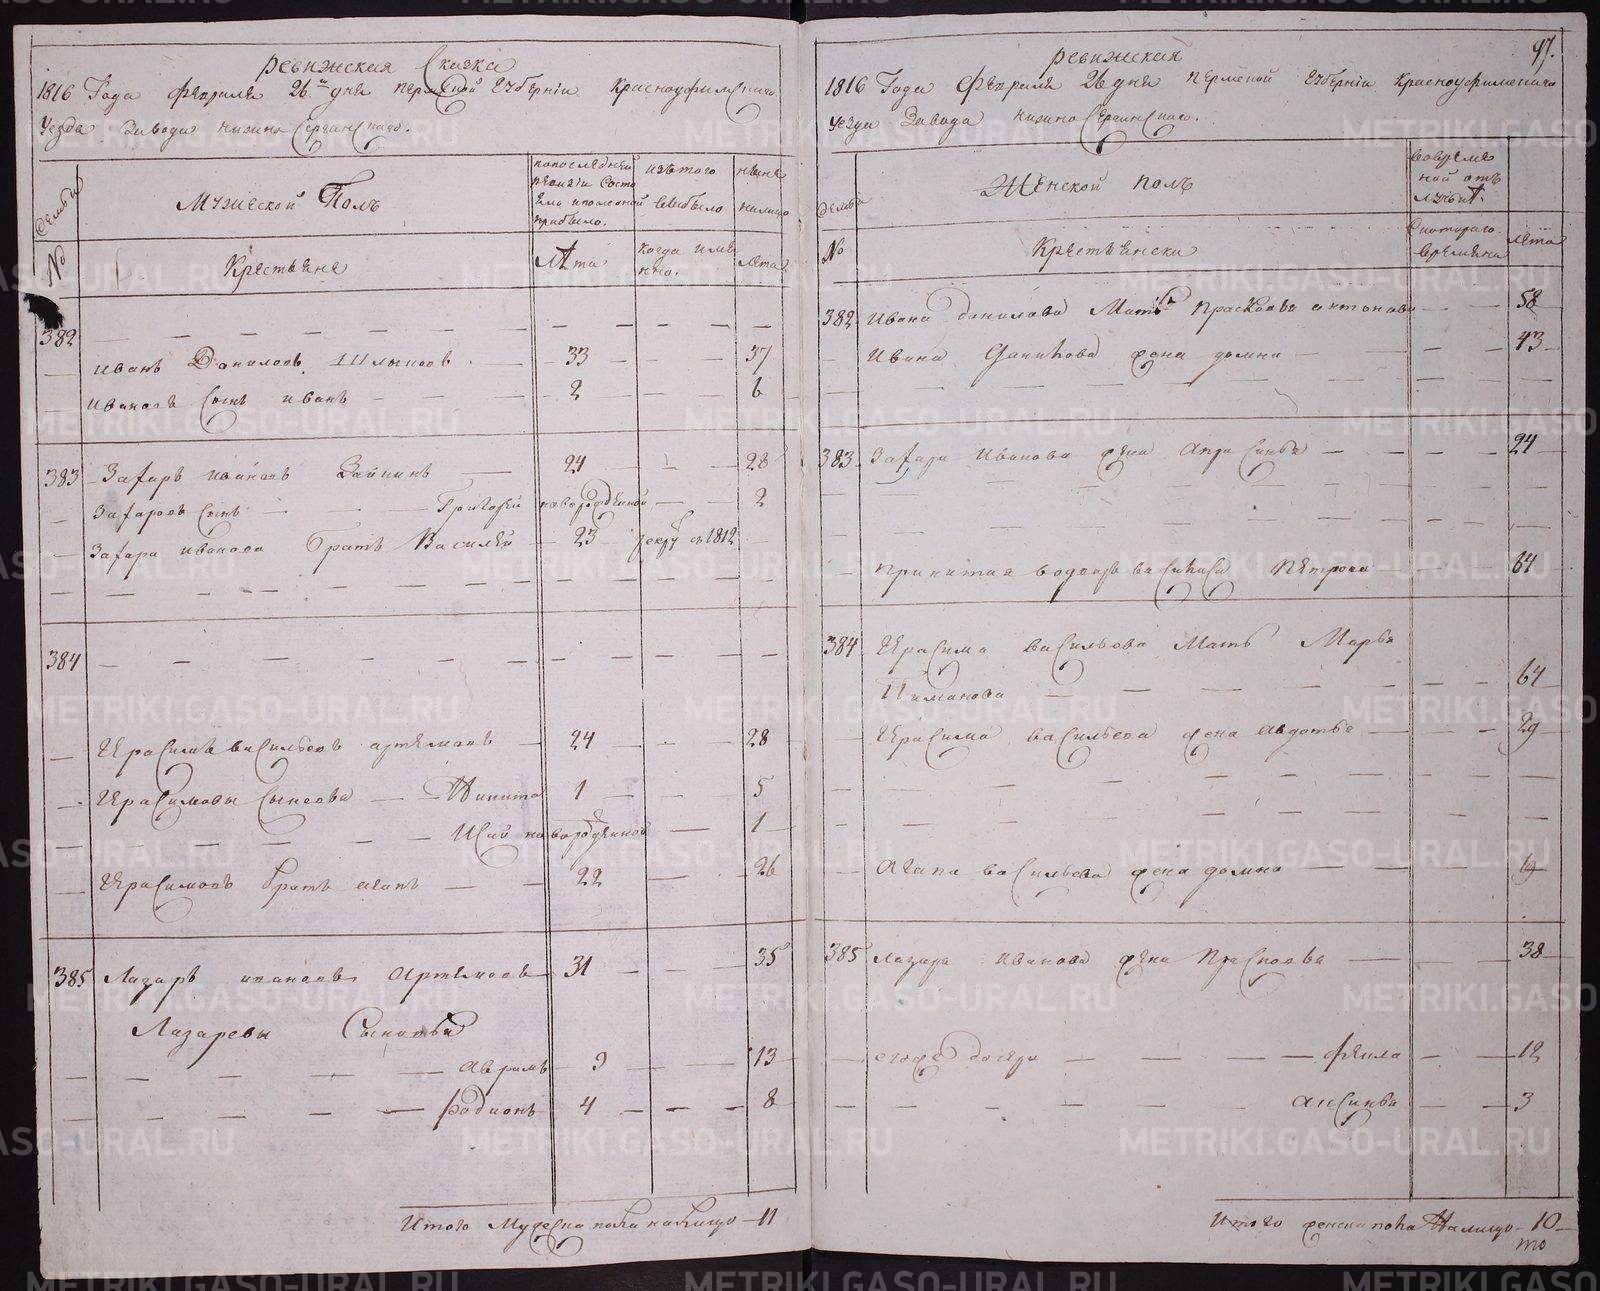 ревижская Сказка
1816 Года Февраля 26 дня пермской губернии Красноуфимскаго
уезда Завода низьно Сергинскаго.
Семьи
Мужеской Полъ
попоследней ревизии Состояло ипослеоной прибыло.
изътого выбыло
ныне налицо
№
Крестьяне
Лета
когда имянно.
Лета
382
иванъ Даниловъ Шлыковъ 33 37
ивановъ Сынъ иванъ 2 6
383 Захаръ ивановъ 24 28
Захаровъ Сынъ Григорей новорожденной 2
Захара иванова братъ Василей 23 рекру в 1812
384
Герасимъ васильевъ артемовъ 24 28
Герасимовы Сыновья Никита 1 5
Исай новорожденной 1
Герасимовъ братъ агапъ 22 26
385 Лазаръ ивановъ Артемовъ 31 35
Лазаревы Сыновья
аврамъ 9 13
родионъ 4 8
Итого Мужеска пола налицо 11
97.
ревижская
1816 Года Февраля 26 дня пермской губернии Красноуфимскаго
уезда Завода низьно Сергинскаго.
Семьи
Женской полъ
вовременной отълучьки.
№
Крестьянски
Скотораго времяни
лета
382 Ивана данилова Мать Прасковья антонова 58
Ивана Данилова жена домна 43
383 Захара Иванова жена 24
Принятая вдова василиса Петрова 64
384 Герасима васильева Мать Марья
Пиманова 64
Герасима васильева жена авдотья 29
Агапа васильева жена домна 19
385 Лазаря Иванова жена Прасковья 38
егоже дочери фекла 12
аксинья 3
Итого женска пола Налицо 10
METRIKI.GASO-URAL.RU